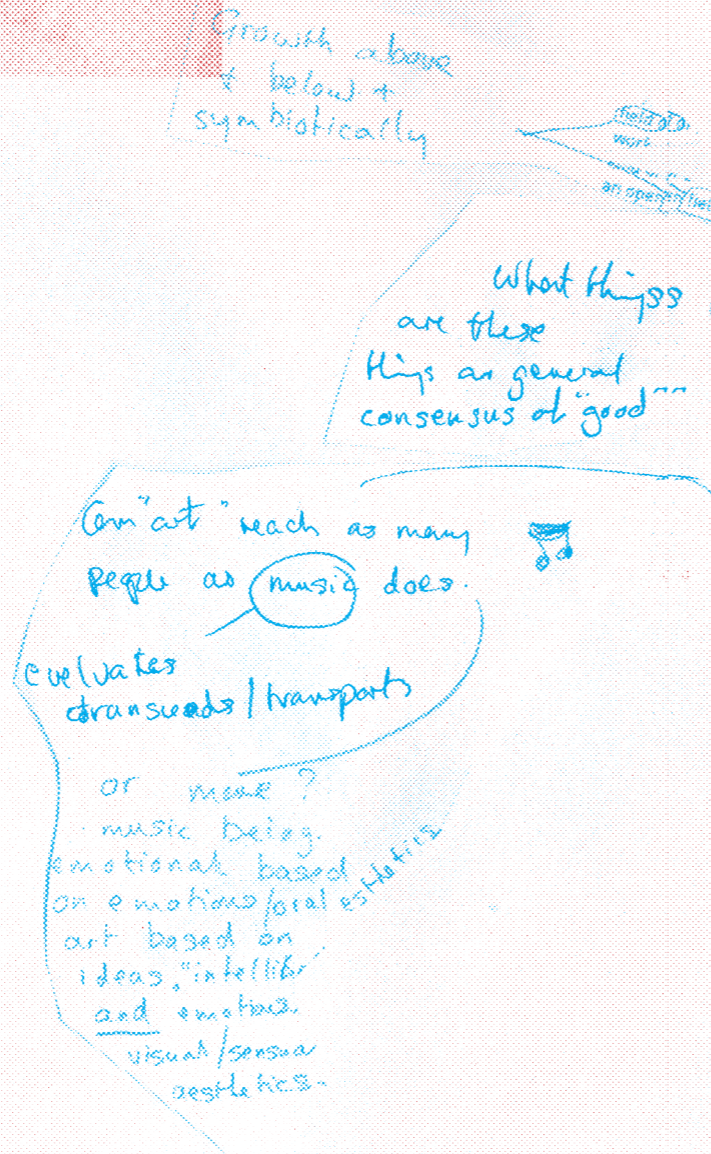 Growth above
+ below +
symbiotically
field
work
an open
What thingss
are these
things an general
consensus of "good"
Can "art" reach as many
people as music does.
evelvates
transcends/transports
or more?
music being
emotional based
on emotions/oral esthetics
art based on
ideas, "
and emotions.
visual/sensual
aesthetics.